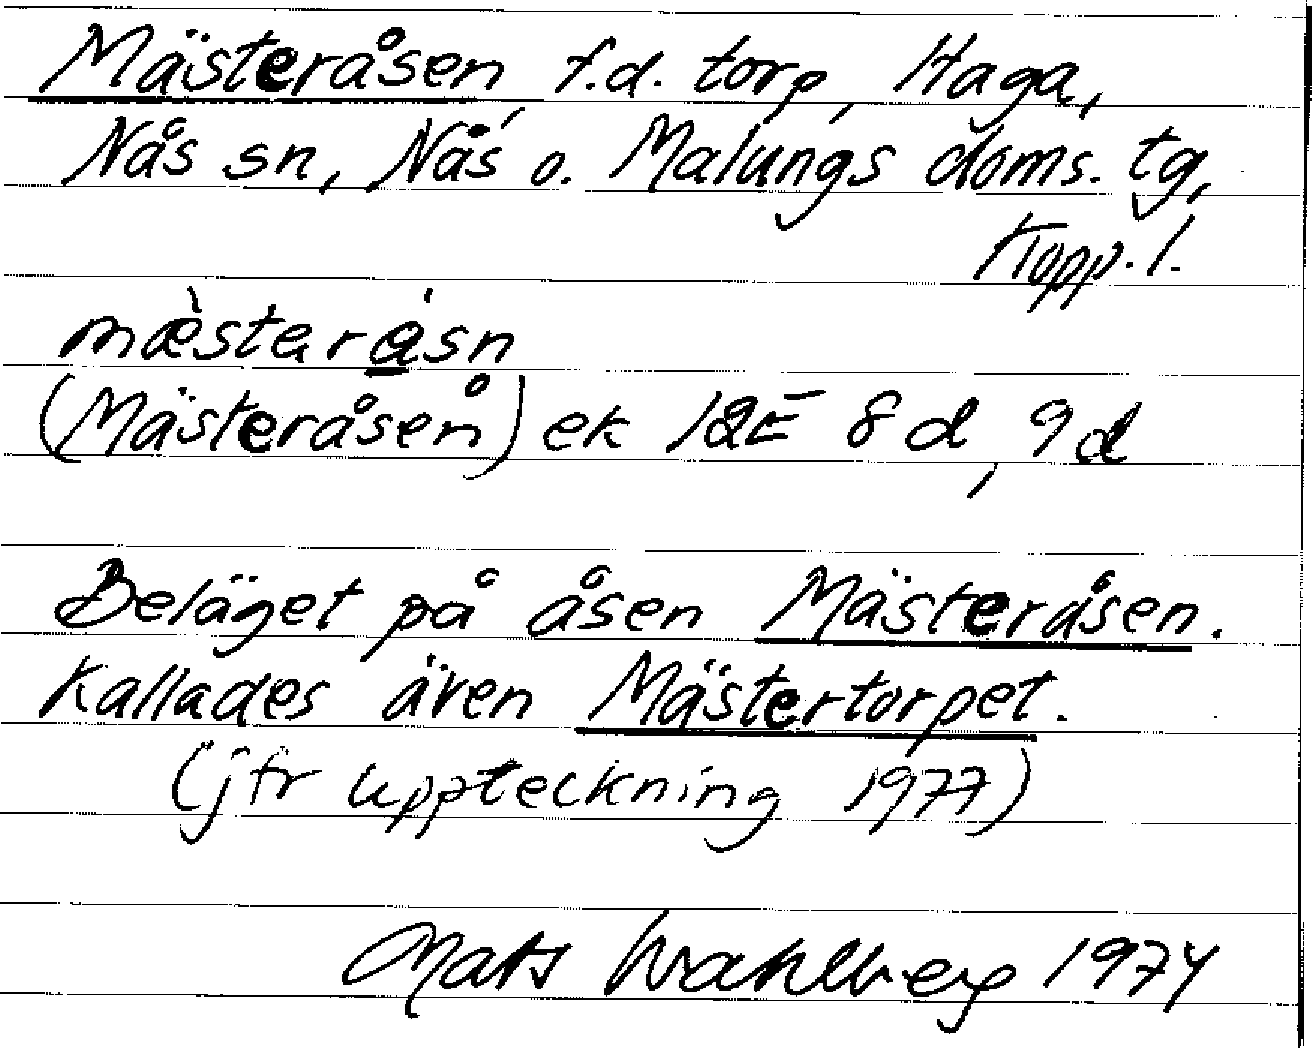 Mästeråsen f.d. torp, Haga,
Nås sn, Nås o. Malungs doms. tg,
Kopp. l.
mæ̀starásn
(Mästeråsen) ek 12E 8d, 9d
Beläget på åsen Mästeråsen.
Kallades även Mästertorpet.
(jfr uppteckning 1977)
Mats Wahlberg 1974